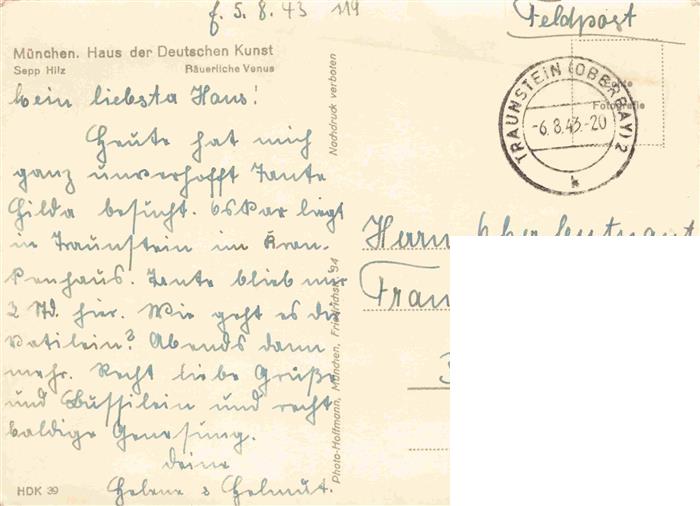 f. 5. 8. 43 119
Feldpost
München. Haus der Deutschen Kunst
Sepp Hilz Bäuerliche Venus
TRAUNSTEIN (OBERBAY) 2
-6. 8. 43.-20
k
Fotografie
Mein liebster Hans!
Heute hat mich
ganz unverhofft Tante
Hilda besucht. Oskar liegt
in Traunstein im Kran-
kenhaus. Tante blieb nur
2 Std. hier. Wie geht es dir
Vatilein? Abends dann
mehr. Recht liebe Grüße
und Bussilein und recht
baldige Genesung.
Deine
Helene & Helmut.
HDK 39
Nachdruck verboten
Photo-Hoffmann, München, Friedrichstr. 34
Herrn Oberleutnant
Fran